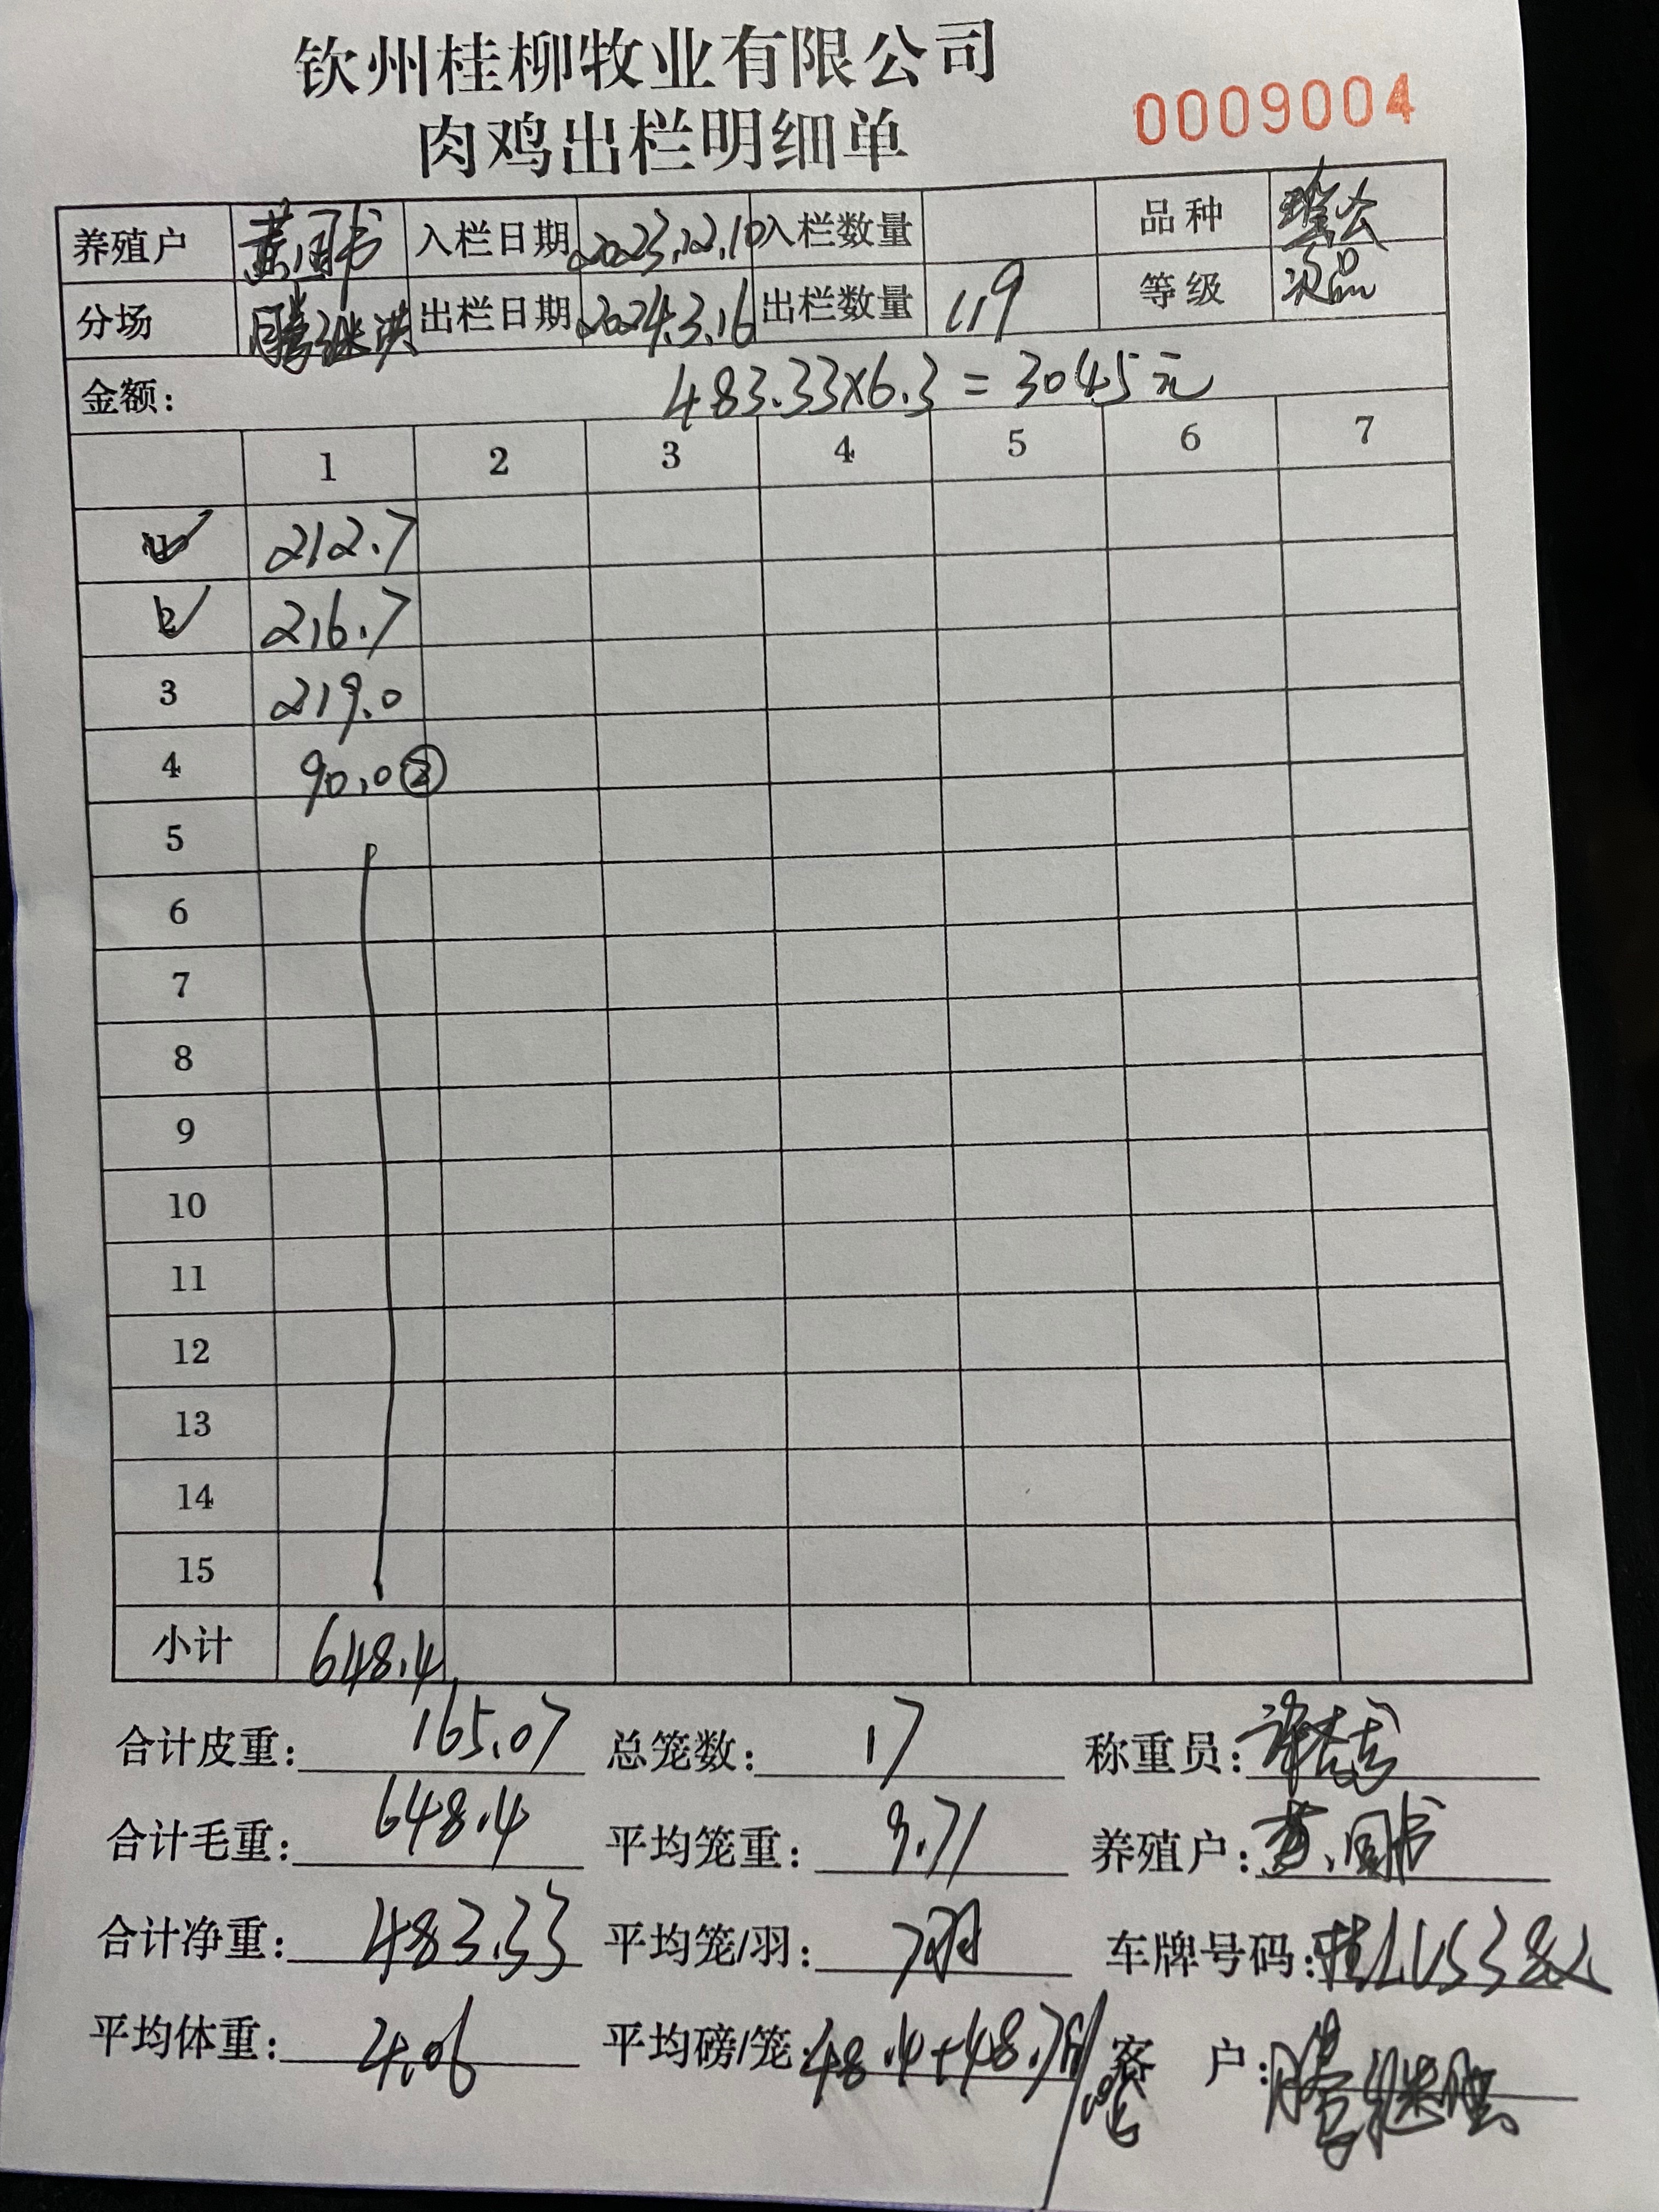 钦州桂柳牧业有限公司
肉鸡出栏明细单
0009004
养殖户 黄国书 入栏日期 2023.12.10 入栏数量 品种
分场 腾继洪 出栏日期 2024.3.16 出栏数量 119 等级 次品
金额: 483.33×6.3=3045元
1 2 3 4 5 6 7
1 212.7
2 216.7
3 219.0
4 90.0②
5
6
7
8
9
10
11
12
13
14
15
小计 648.4
合计皮重: 165.07 总笼数: 17 称重员:
合计毛重: 648.4 平均笼重: 9.71 养殖户: 黄国书
合计净重: 483.33 平均笼/羽: 7羽 车牌号码:
平均体重: 4.06 平均磅/笼: 48.4+48.7 客 户: